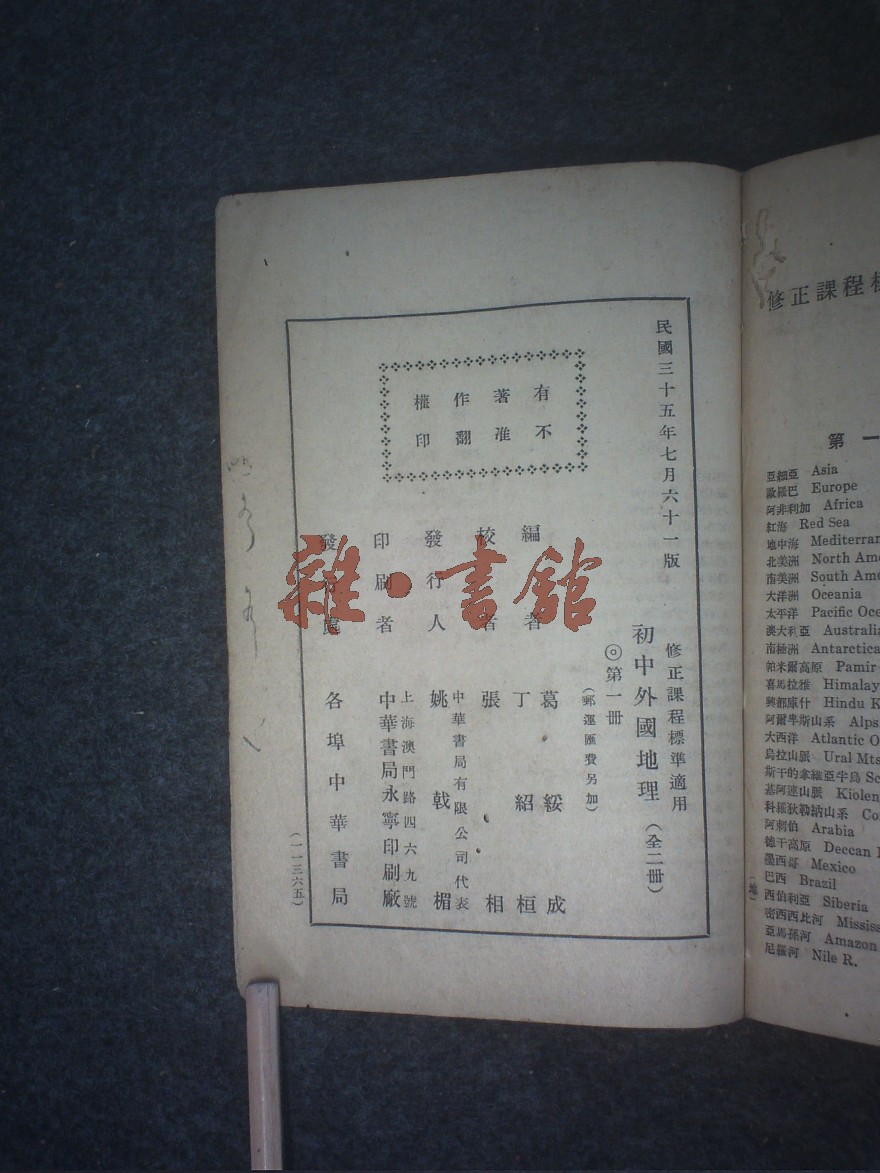 民國三十五年七月六十一版
修正課程標準適用
初中外國地理(全二冊)
◎第一冊
(郵運匯費另加)
有著作權
不准翻印
編者 葛綏成
丁紹桓
校者 張相
發行人 中華書局有限公司代表
姚戟楣
印刷者 上海澳門路四六九號
中華書局永寧印刷廠
發行處 各埠中華書局
(一一三六五)
雜·書館
修正課程標
第一
亞細亞 Asia
歐羅巴 Europe
阿非利加 Africa
紅海 Red Sea
地中海 Mediterran
北美洲 North Ame
南美洲 South Ame
大洋洲 Oceania
太平洋 Pacific Oce
澳大利亞 Australia
南極洲 Antarctica
帕米爾高原 Pamir
喜馬拉雅 Himalay
興都庫什 Hindu K
阿爾卑斯山系 Alps
大西洋 Atlantic O
烏拉山脈 Ural Mts
斯干的拿維亞半島 Sc
基阿連山脈 Kiolen
科羅狄勒納山系 Co
阿剌伯 Arabia
德干高原 Deccan
墨西哥 Mexico
巴西 Brazil
西伯利亞 Siberia
密西西比河 Mississ
亞馬孫河 Amazon
尼羅河 Nile R.
(地)